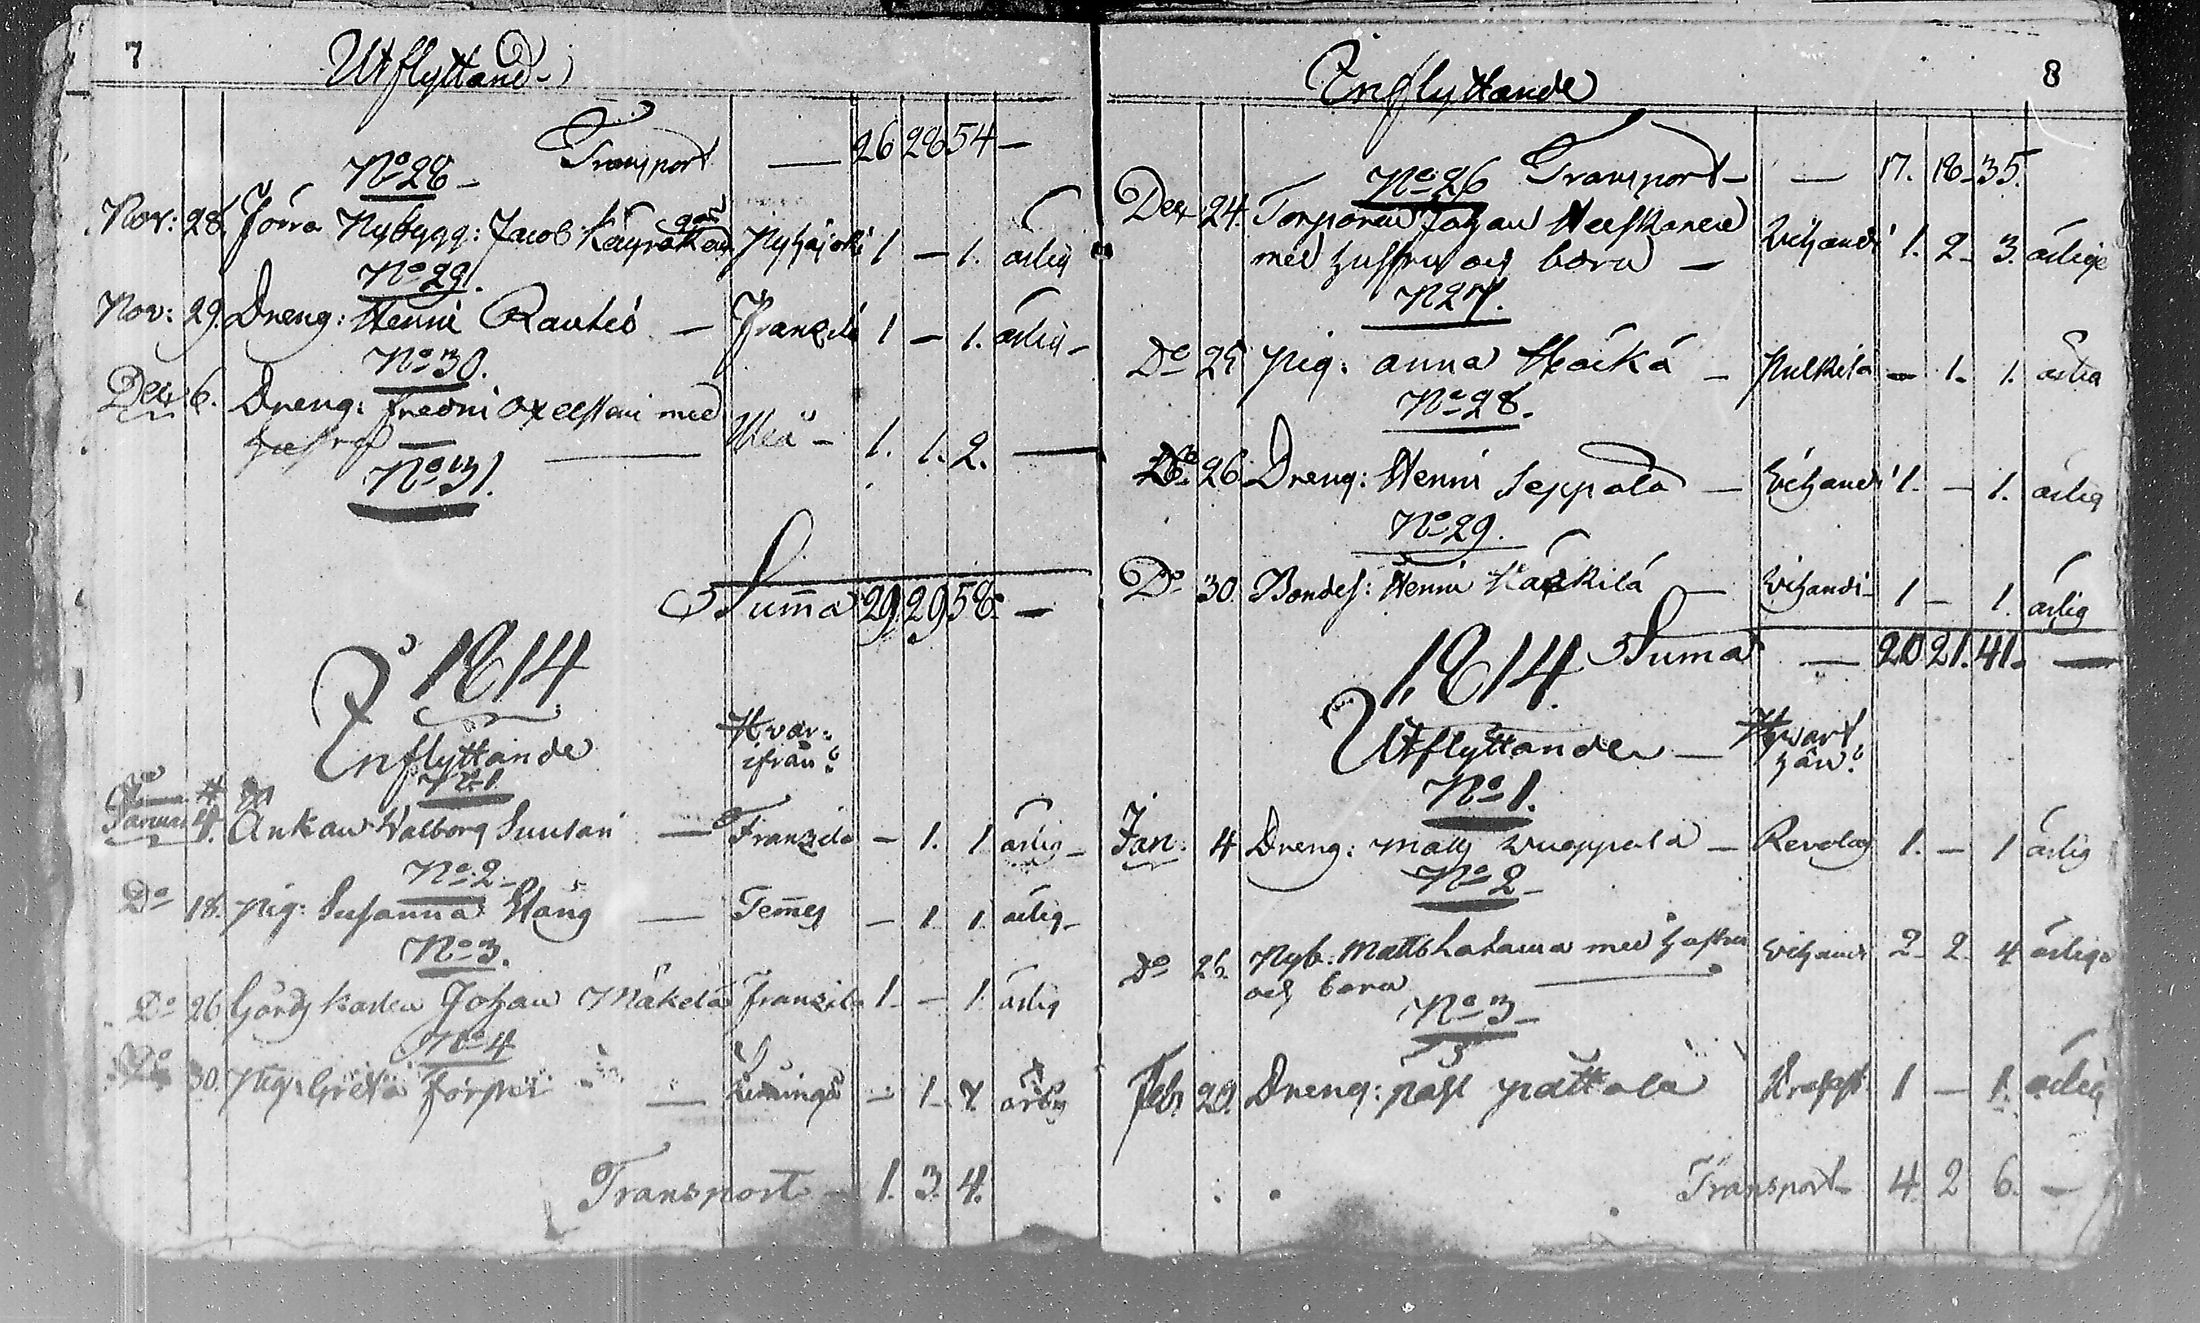 7
Utflyttand.
Transport — 26 28 54 —
No 28
Nov: 28. Förra Nybygg: Jacob Pyhäjoki 1 — 1. ärlig
No 29.
Nov: 29. Dreng: Henric Rautio — Franzila 1 — 1. ärlig
No 30.
Dec: 6. Dreng: med Uleå 1. 1. 2. —
hustru
No 31.
Summa 29 29 58. —
1814
Inflyttande Hvar-
ifrån?
No 1
4. Enkan Walborg Suutari — Franzila — 1. 1 ärlig
No 2
Do 18. pig: Susanna Stång — Temmes — 1. 1. ärlig
No 3.
Do 26. Johan Mäkelä Franzila 1 — 1. ärlig
No 4
Do 30. Pig: Greta — Liminga — 1. 1. ärlig
Transport 1. 3. 4.
8
Inflyttande
No 26 Transport — 17. 18 35.
Dec 24. Torparen Johan Heiskanen
med hustru och barn — Wihandi 1. 2. 3. ärlige
No 27.
Do 25 pig: Anna — Pulkila — 1. 1. ärlig
No 28.
Do 26 Dreng: Henric Seppälä — Wihandi 1. — 1. ärlig
No 29.
Do 30. Bondes: Henric — Wihandi 1 — 1. ärlig
Suma — 20 21. 41. —
1814.
Utflyttande — Hvart
hän?
No 1.
Jan: 4 Dreng: Matts — Revolax 1. — 1 ärlig
No 2
Do 26. Nyb: Matts med hustru Wihandi 2. 2. 4 ärlige
och barn
No 3
Feb. 20. Dreng: — 1 — 1. ärlig
Transport 4. 2 6. —